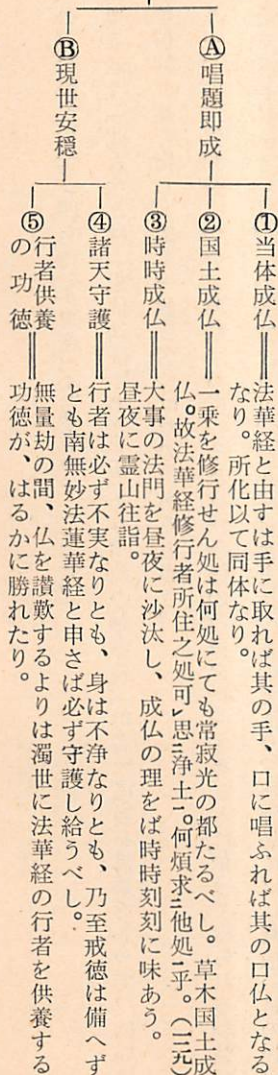 Ⓐ唱題即成
①当体成仏＝法華経と由すは手に取れば其の手、口に唱ふれば其の口仏となる
なり。所化以て同体なり。
②国土成仏＝一乗を修行せん処は何処にても常寂光の都たるべし。草木国土成
仏。故法華経修行者所住之処可㆑思㆓浄土㆒。何煩求㆓他処㆒乎。(一三九)
③時時成仏＝大事の法門を昼夜に沙汰し、成仏の理をば時時刻刻に味あう。
昼夜に霊山往詣。
Ⓑ現世安穏
④諸天守護＝行者は必ず不実なりとも、身は不浄なりとも、乃至戒徳は備へず
とも南無妙法蓮華経と申さば必ず守護し給うべし。
⑤行者供養
の功徳＝無量劫の間、仏を讃歎するよりは濁世に法華経の行者を供養する
功徳が、はるかに勝れたり。